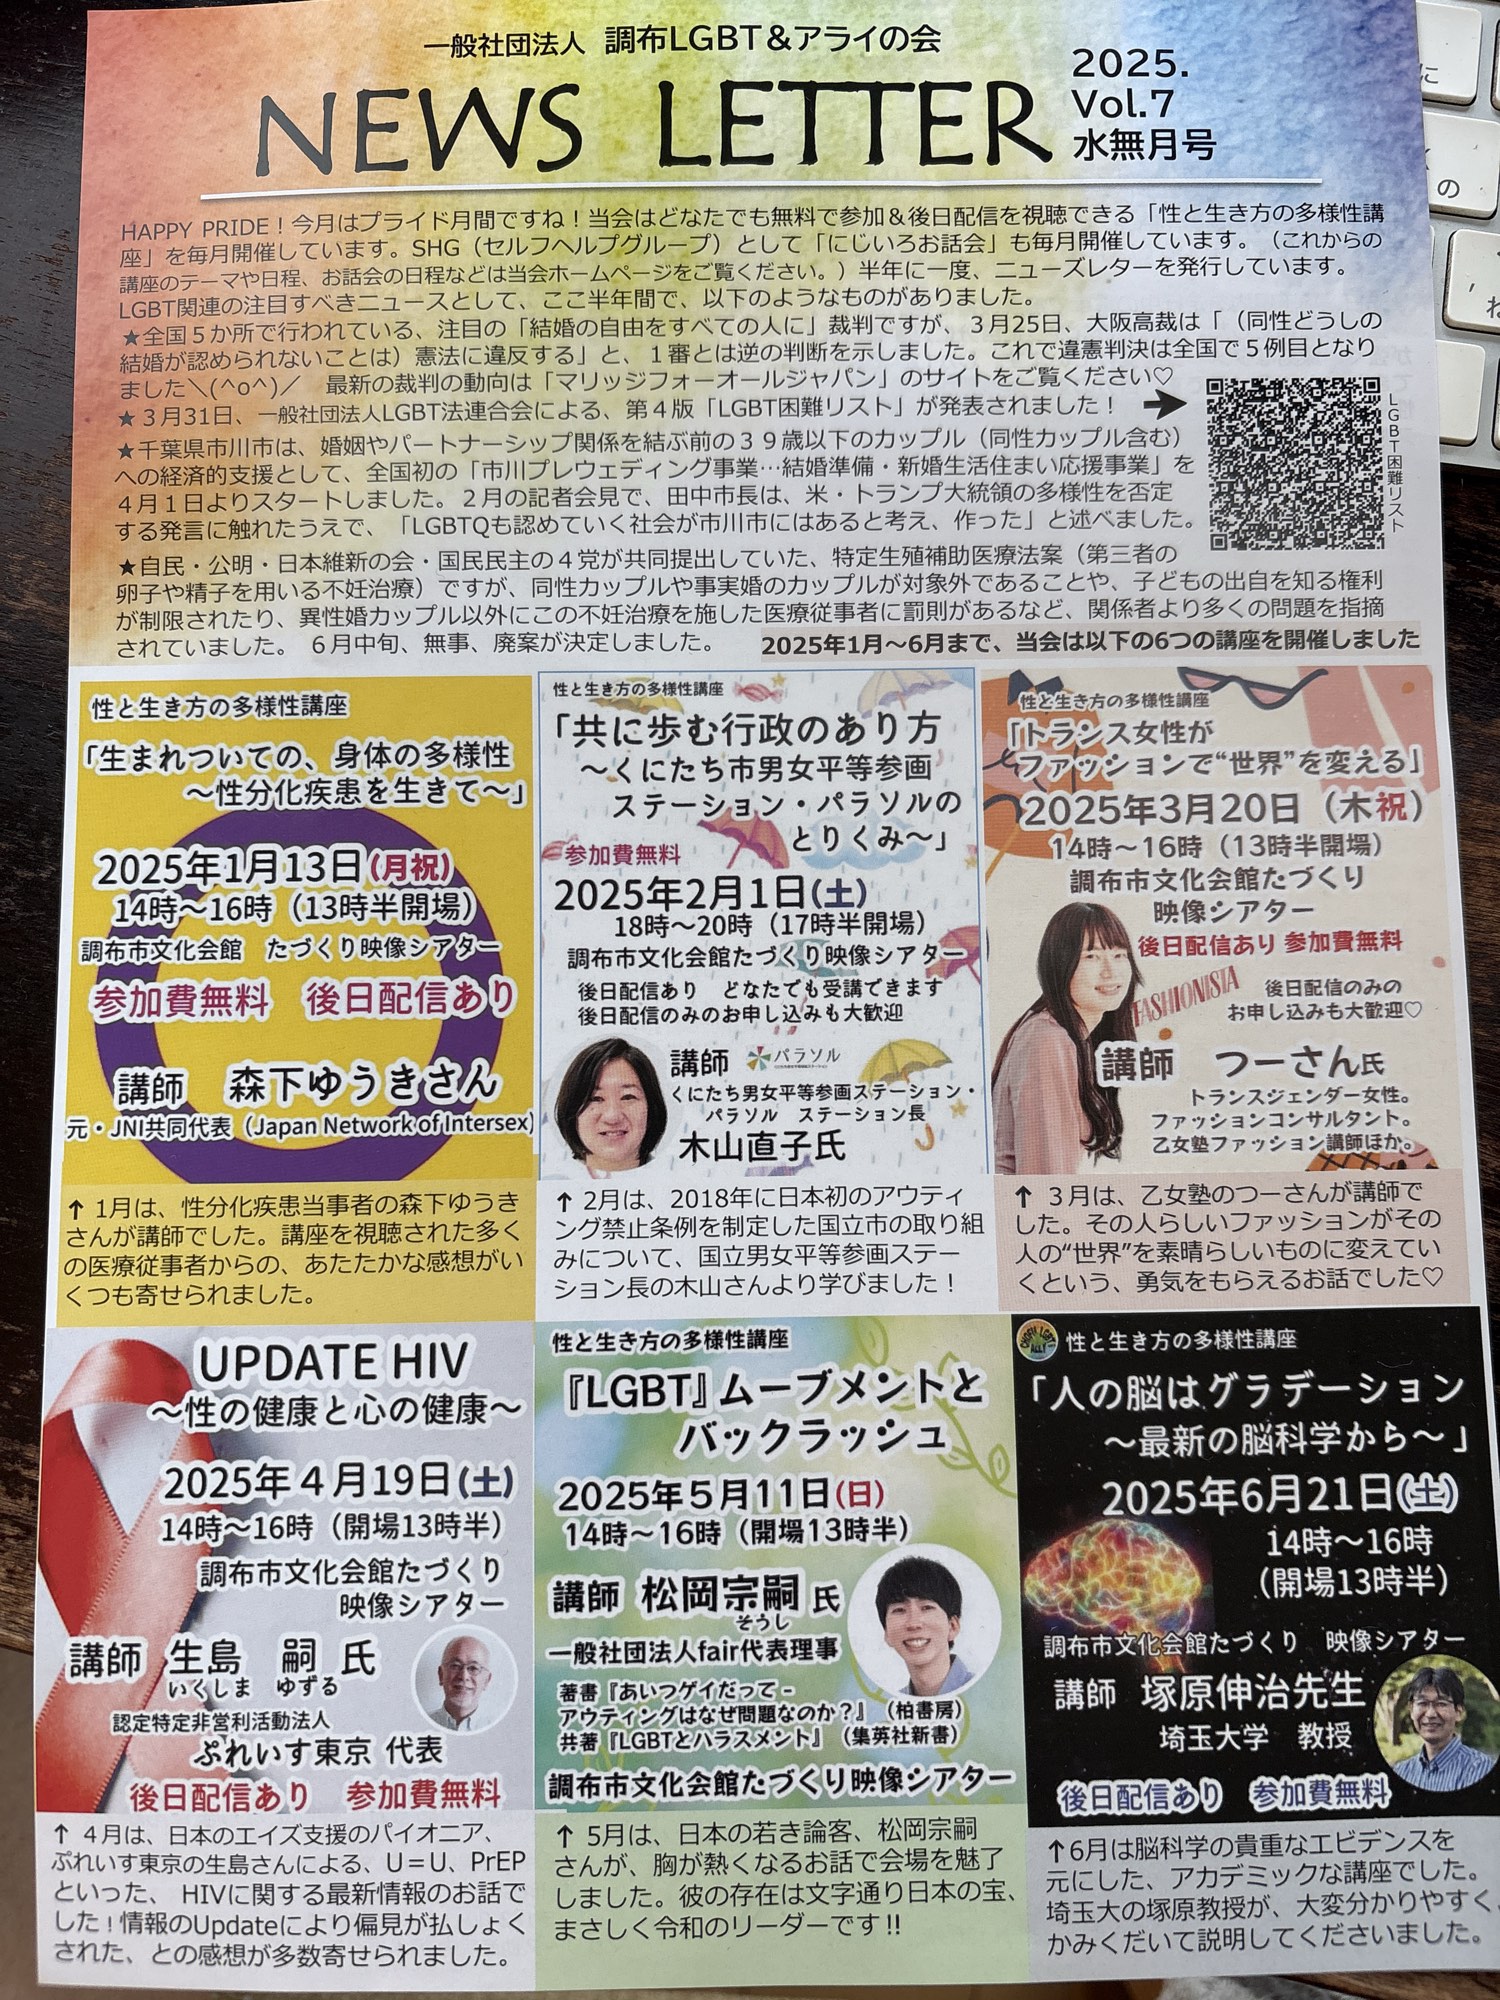 一般社団法人 調布LGBT＆アライの会
NEWS LETTER
2025.
Vol.7
水無月号
HAPPY PRIDE！今月はプライド月間ですね！当会はどなたでも無料で参加＆後日配信を視聴できる「性と生き方の多様性講
座」を毎月開催しています。SHG（セルフヘルプグループ）として「にじいろお話会」も毎月開催しています。（これからの
講座のテーマや日程、お話会の日程などは当会ホームページをご覧ください。）半年に一度、ニューズレターを発行しています。
LGBT関連の注目すべきニュースとして、ここ半年間で、以下のようなものがありました。
★全国５か所で行われている、注目の「結婚の自由をすべての人に」裁判ですが、３月25日、大阪高裁は「（同性どうしの
結婚が認められないことは）憲法に違反する」と、１審とは逆の判断を示しました。これで違憲判決は全国で５例目となり
ました＼(^o^)／　最新の裁判の動向は「マリッジフォーオールジャパン」のサイトをご覧ください♡
★３月31日、一般社団法人LGBT法連合会による、第４版「LGBT困難リスト」が発表されました！
LGBT困難リスト
★千葉県市川市は、婚姻やパートナーシップ関係を結ぶ前の３９歳以下のカップル（同性カップル含む）
への経済的支援として、全国初の「市川プレウェディング事業…結婚準備・新婚生活住まい応援事業」を
４月１日よりスタートしました。２月の記者会見で、田中市長は、米・トランプ大統領の多様性を否定
する発言に触れたうえで、「LGBTQも認めていく社会が市川市にはあると考え、作った」と述べました。
★自民・公明・日本維新の会・国民民主の４党が共同提出していた、特定生殖補助医療法案（第三者の
卵子や精子を用いる不妊治療）ですが、同性カップルや事実婚のカップルが対象外であることや、子どもの出自を知る権利
が制限されたり、異性婚カップル以外にこの不妊治療を施した医療従事者に罰則があるなど、関係者より多くの問題を指摘
されていました。６月中旬、無事、廃案が決定しました。
2025年1月～6月まで、当会は以下の6つの講座を開催しました
性と生き方の多様性講座
「生まれついての、身体の多様性
～性分化疾患を生きて～」
2025年1月13日(月祝)
14時～16時（13時半開場）
調布市文化会館　たづくり映像シアター
参加費無料　後日配信あり
講師　森下ゆうきさん
元・JNI共同代表（Japan Network of Intersex)
↑ 1月は、性分化疾患当事者の森下ゆうき
さんが講師でした。講座を視聴された多く
の医療従事者からの、あたたかな感想がい
くつも寄せられました。
性と生き方の多様性講座
「共に歩む行政のあり方
～くにたち市男女平等参画
ステーション・パラソルの
とりくみ～」
参加費無料
2025年2月1日(土)
18時～20時（17時半開場）
調布市文化会館たづくり映像シアター
後日配信あり　どなたでも受講できます
後日配信のみのお申し込みも大歓迎
講師 パラソル
くにたち男女平等参画ステーション・
パラソル　ステーション長
木山直子氏
↑ 2月は、2018年に日本初のアウティ
ング禁止条例を制定した国立市の取り組
みについて、国立男女平等参画ステー
ション長の木山さんより学びました！
性と生き方の多様性講座
「トランス女性が
ファッションで“世界”を変える」
2025年3月20日（木祝）
14時～16時（13時半開場）
調布市文化会館たづくり
映像シアター
後日配信あり 参加費無料
FASHIONISTA
後日配信のみの
お申し込みも大歓迎♡
講師　つーさん氏
トランスジェンダー女性。
ファッションコンサルタント。
乙女塾ファッション講師ほか。
↑ ３月は、乙女塾のつーさんが講師で
した。その人らしいファッションがその
人の“世界”を素晴らしいものに変えてい
くという、勇気をもらえるお話でした♡
UPDATE HIV
～性の健康と心の健康～
2025年４月19日(土)
14時～16時（開場13時半）
調布市文化会館たづくり
映像シアター
講師　生島　嗣 氏
いくしま　ゆずる
認定特定非営利活動法人
ぷれいす東京 代表
後日配信あり　参加費無料
↑ ４月は、日本のエイズ支援のパイオニア、
ぷれいす東京の生島さんによる、U＝U、PrEP
といった、HIVに関する最新情報のお話で
した！情報のUpdateにより偏見が払しょく
された、との感想が多数寄せられました。
性と生き方の多様性講座
『LGBT』ムーブメントと
バックラッシュ
2025年５月11日(日)
14時～16時（開場13時半）
講師 松岡宗嗣 氏
そうし
一般社団法人fair代表理事
著書『あいつゲイだって -
アウティングはなぜ問題なのか？』（柏書房）
共著『LGBTとハラスメント』（集英社新書）
調布市文化会館たづくり映像シアター
↑ 5月は、日本の若き論客、松岡宗嗣
さんが、胸が熱くなるお話で会場を魅了
しました。彼の存在は文字通り日本の宝、
まさしく令和のリーダーです!!
CHOFU LGBT ALLY
性と生き方の多様性講座
「人の脳はグラデーション
～最新の脳科学から～」
2025年6月21日(土)
14時～16時
（開場13時半）
調布市文化会館たづくり　映像シアター
講師　塚原伸治先生
埼玉大学　教授
後日配信あり　参加費無料
↑6月は脳科学の貴重なエビデンスを
元にした、アカデミックな講座でした。
埼玉大の塚原教授が、大変分かりやすく、
かみくだいて説明してくださいました。
に
の
ね